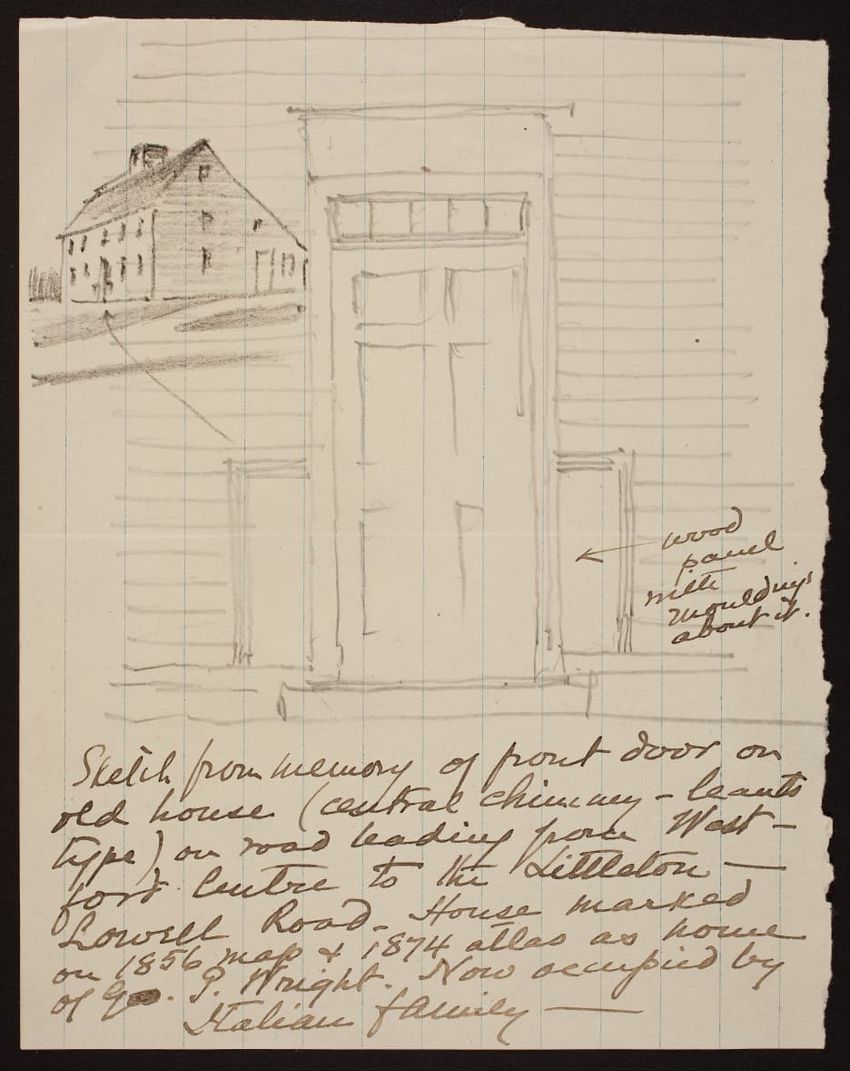 wood
panel
with
mouldings
about it.
Sketch from memory of front door on
old house (central chimney - leanto
type) on road leading from West-
ford Centre to the Littleton -
Lowell Road. House marked
on 1856 map & 1874 atlas as home
of Geo. P. Wright. Now occupied by
Italian family -